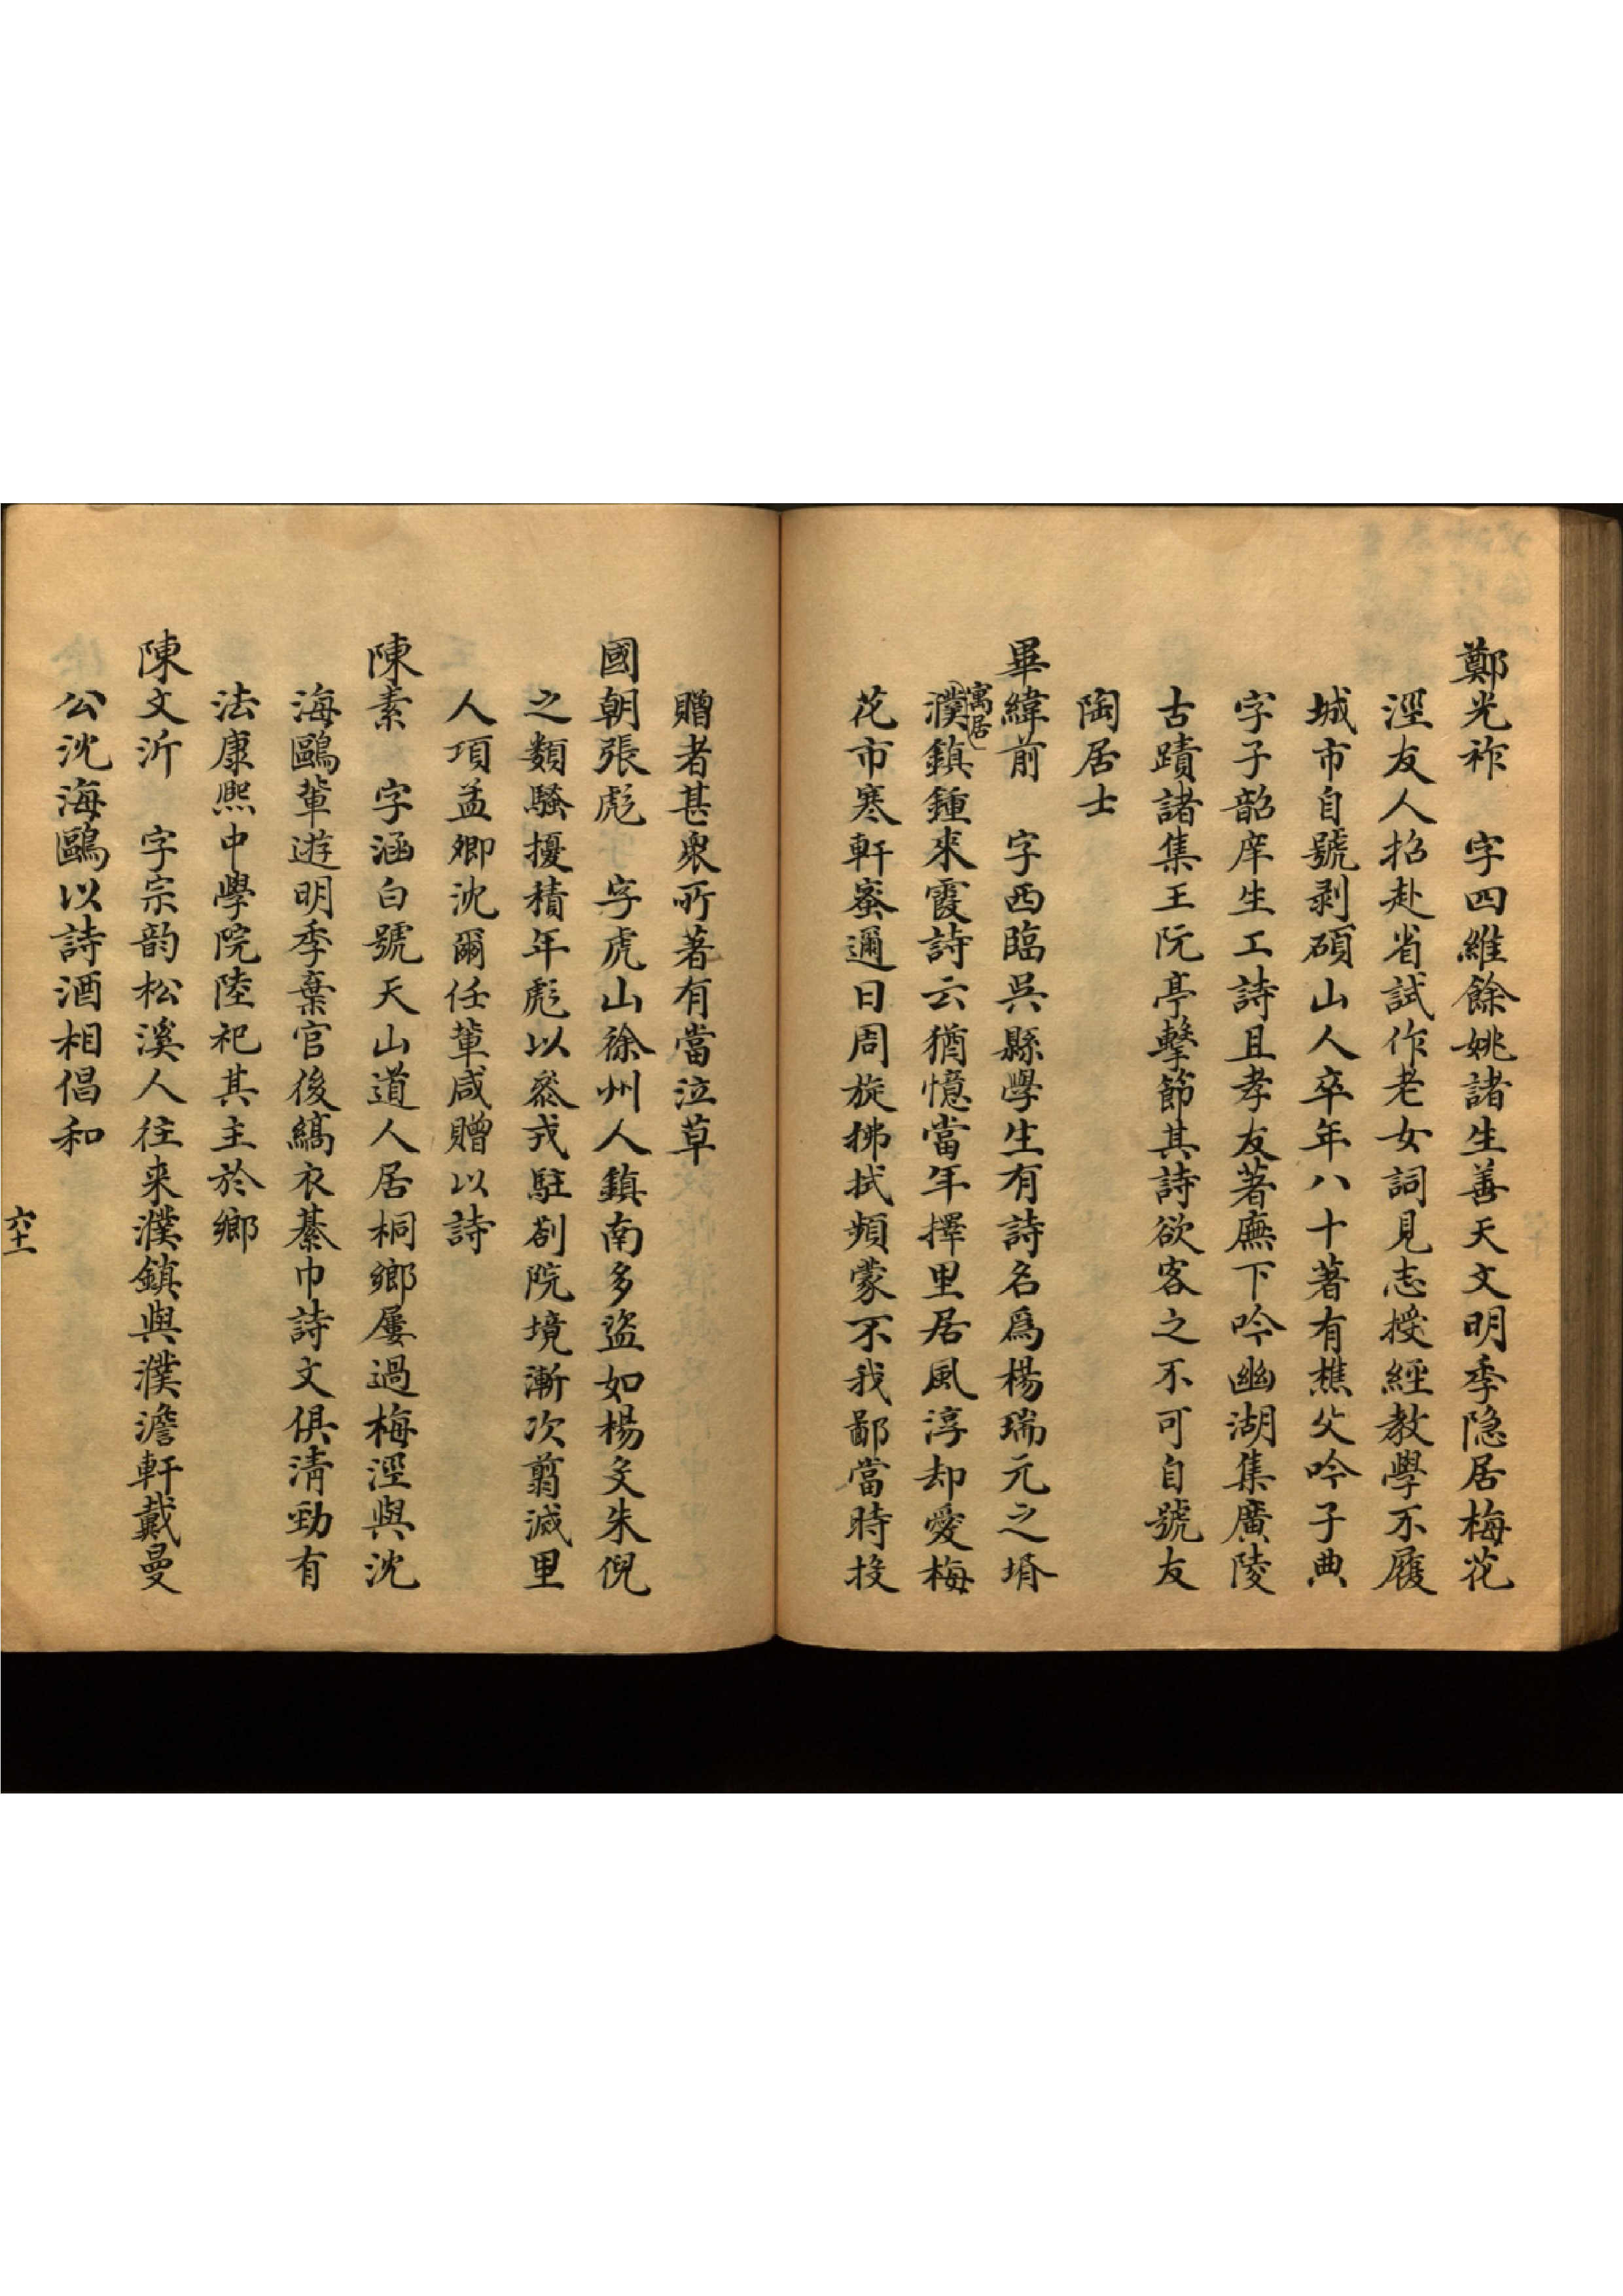 鄭光祚　字四維餘姚諸生善天文明季隐居梅花
涇友人招赴省試作老女詞見志授經教學不履
城市自號剥碩山人卒年八十著有樵父吟子典
字子韶庠生工詩且孝友著廡下吟幽湖集廣陵
古蹟諸集王阮亭擊節其詩欲客之不可自號友
陶居士
畢緯前　字西臨吳縣學生有詩名爲楊瑞元之壻
寓居
濮鎮鍾來霞詩云猶憶當年擇里居風淳却愛梅
花市寒軒密邇日周旋拂拭頻蒙不我鄙當時投
贈者甚衆所著有當泣草
國朝張彪　字虎山徐州人鎮南多盜如楊文朱倪
之類騷擾積年彪以叅戎駐劄院境漸次翦滅里
人項孟卿沈爾任輩咸贈以詩
陳素　字涵白號天山道人居桐鄉屢過梅涇與沈
海鷗輩遊明季棄官後縞衣綦巾詩文俱清勁有
法康熙中學院陸祀其主於鄉
陳文沂　字宗韵松溪人往来濮鎮與濮澹軒戴曼
公沈海鷗以詩酒相倡和
六十一